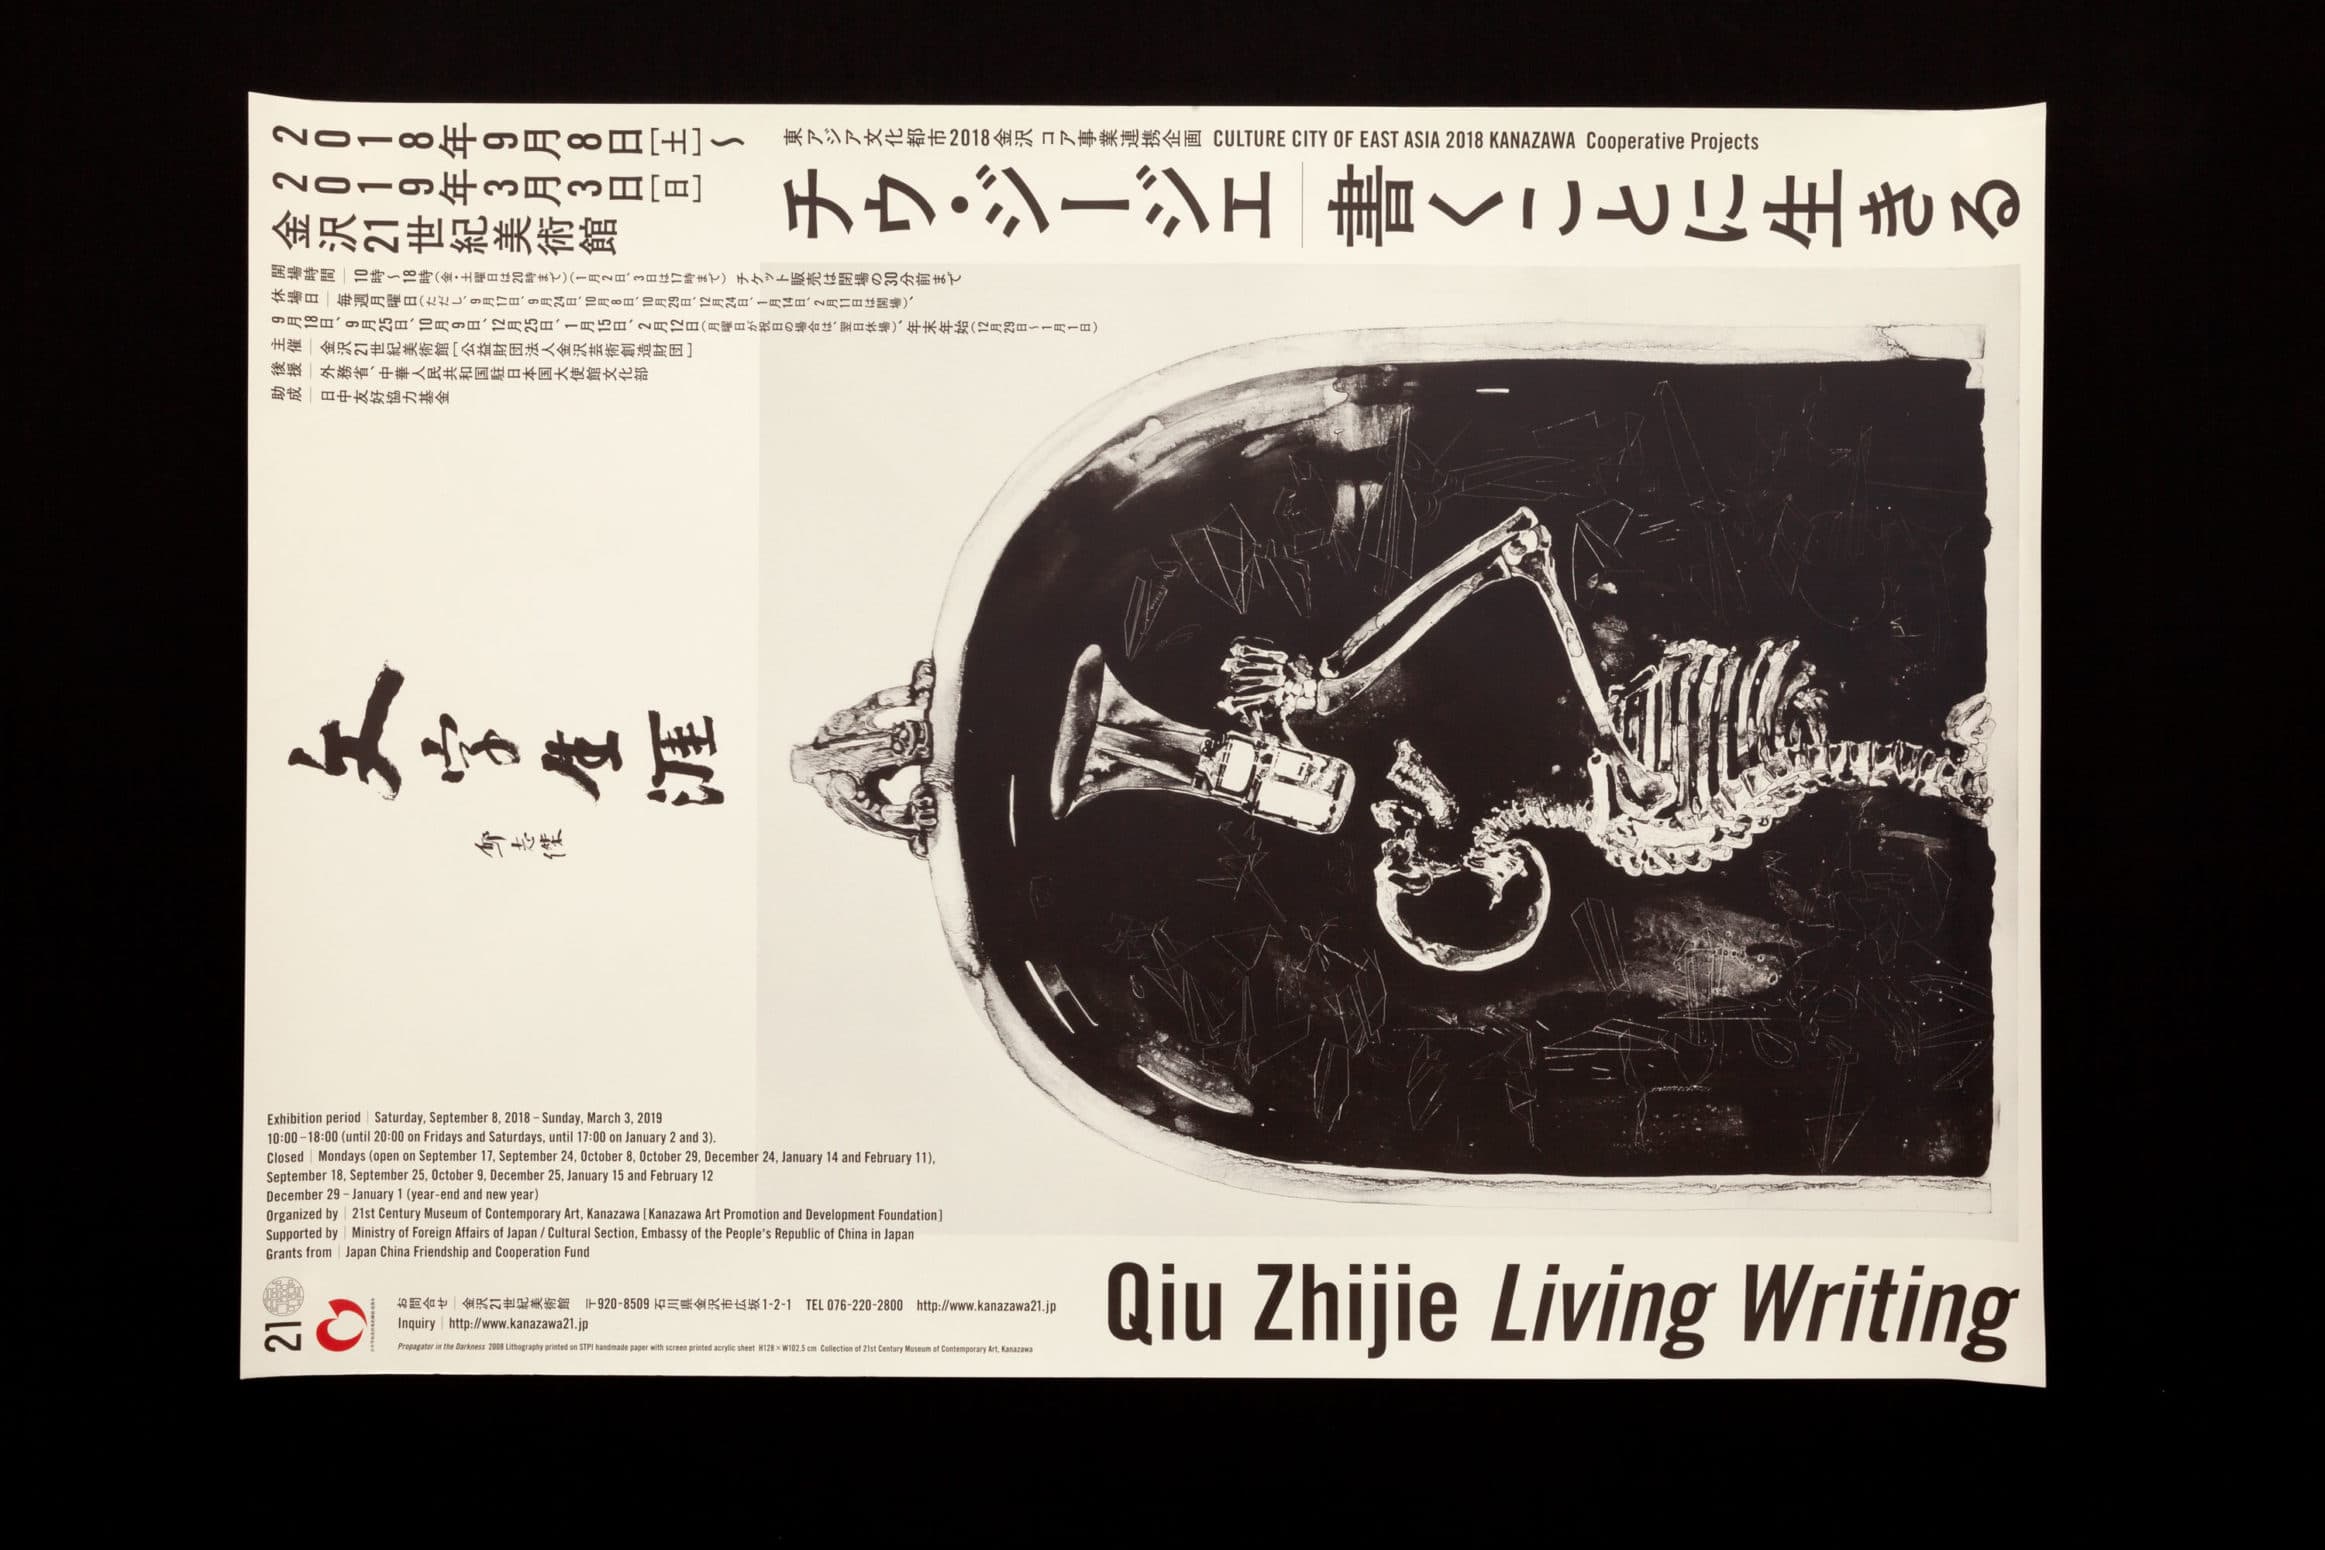 2018年9月8日[土]〜
2019年3月3日[日]
金沢21世紀美術館
開場時間｜10時〜18時(金・土曜日は20時まで)(1月2日、3日は17時まで) チケット販売は閉場の30分前まで
休場日｜毎週月曜日(ただし、9月17日、9月24日、10月8日、10月29日、12月24日、1月14日、2月11日は開場)、
9月18日、9月25日、10月9日、12月25日、1月15日、2月12日(月曜日が祝日の場合は、翌日休場)、年末年始(12月29日〜1月1日)
主催｜金沢21世紀美術館[公益財団法人金沢芸術創造財団]
後援｜外務省、中華人民共和国駐日本国大使館文化部
助成｜日中友好協力基金
東アジア文化都市2018金沢 コア事業連携企画 CULTURE CITY OF EAST ASIA 2018 KANAZAWA Cooperative Projects
チウ・ジージエ｜書くことに生きる
文字生涯
邱志傑
Exhibition period | Saturday, September 8, 2018 – Sunday, March 3, 2019
10:00–18:00 (until 20:00 on Fridays and Saturdays, until 17:00 on January 2 and 3).
Closed | Mondays (open on September 17, September 24, October 8, October 29, December 24, January 14 and February 11),
September 18, September 25, October 9, December 25, January 15 and February 12
December 29 – January 1 (year-end and new year)
Organized by | 21st Century Museum of Contemporary Art, Kanazawa [Kanazawa Art Promotion and Development Foundation]
Supported by | Ministry of Foreign Affairs of Japan / Cultural Section, Embassy of the People's Republic of China in Japan
Grants from | Japan China Friendship and Cooperation Fund
21
お問合せ｜金沢21世紀美術館 〒920-8509 石川県金沢市広坂1-2-1 TEL 076-220-2800 http://www.kanazawa21.jp
Inquiry | http://www.kanazawa21.jp
Propagator in the Darkness 2008 Lithography printed on STPI handmade paper with screen printed acrylic sheet H128 × W102.5 cm Collection of 21st Century Museum of Contemporary Art, Kanazawa
Qiu Zhijie Living Writing